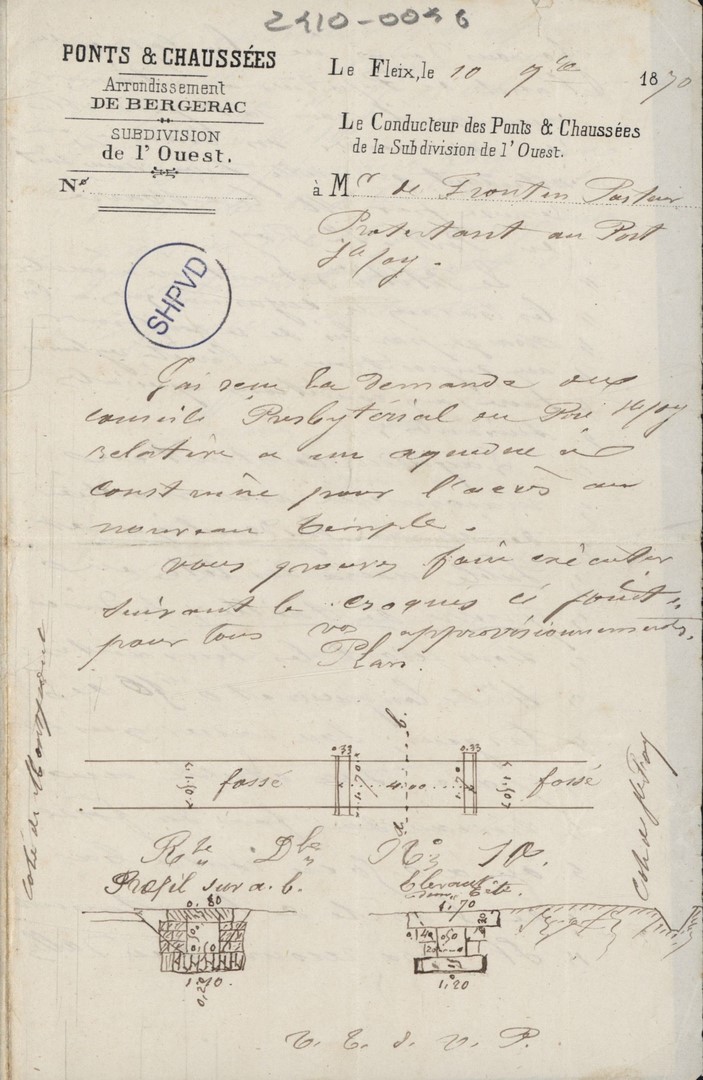 2410-0046
PONTS & CHAUSSÉES
Arrondissement
DE BERGERAC
SUBDIVISION
de l'Ouest.
N°
Le Fleix, le 10 9bre 1870
Le Conducteur des Ponts & Chaussées
de la Subdivision de l'Ouest.
à Mr de Frontin Pasteur
Protestant au Port
Ste foy.
SHPVD
J'ai reçu la demande du
conseil Presbytérial du Port Ste foy
relative a un aqueduc à
construire pour l'accès au
nouveau temple.
vous pouvez faire exécuter
suivant le croquis ci joint
pour tous vos approvisionnements.
Plan.
Coté de
b.
0.33
0.33
fossé
1.70
4.00
1.70
fossé
a.
Rte Dle N° 10.
Coté de Ste Foy
Profil sur a. b.
Elévation Tête
0.80
1.70
1.20
0,20
1.20
T. T. S. V. P.